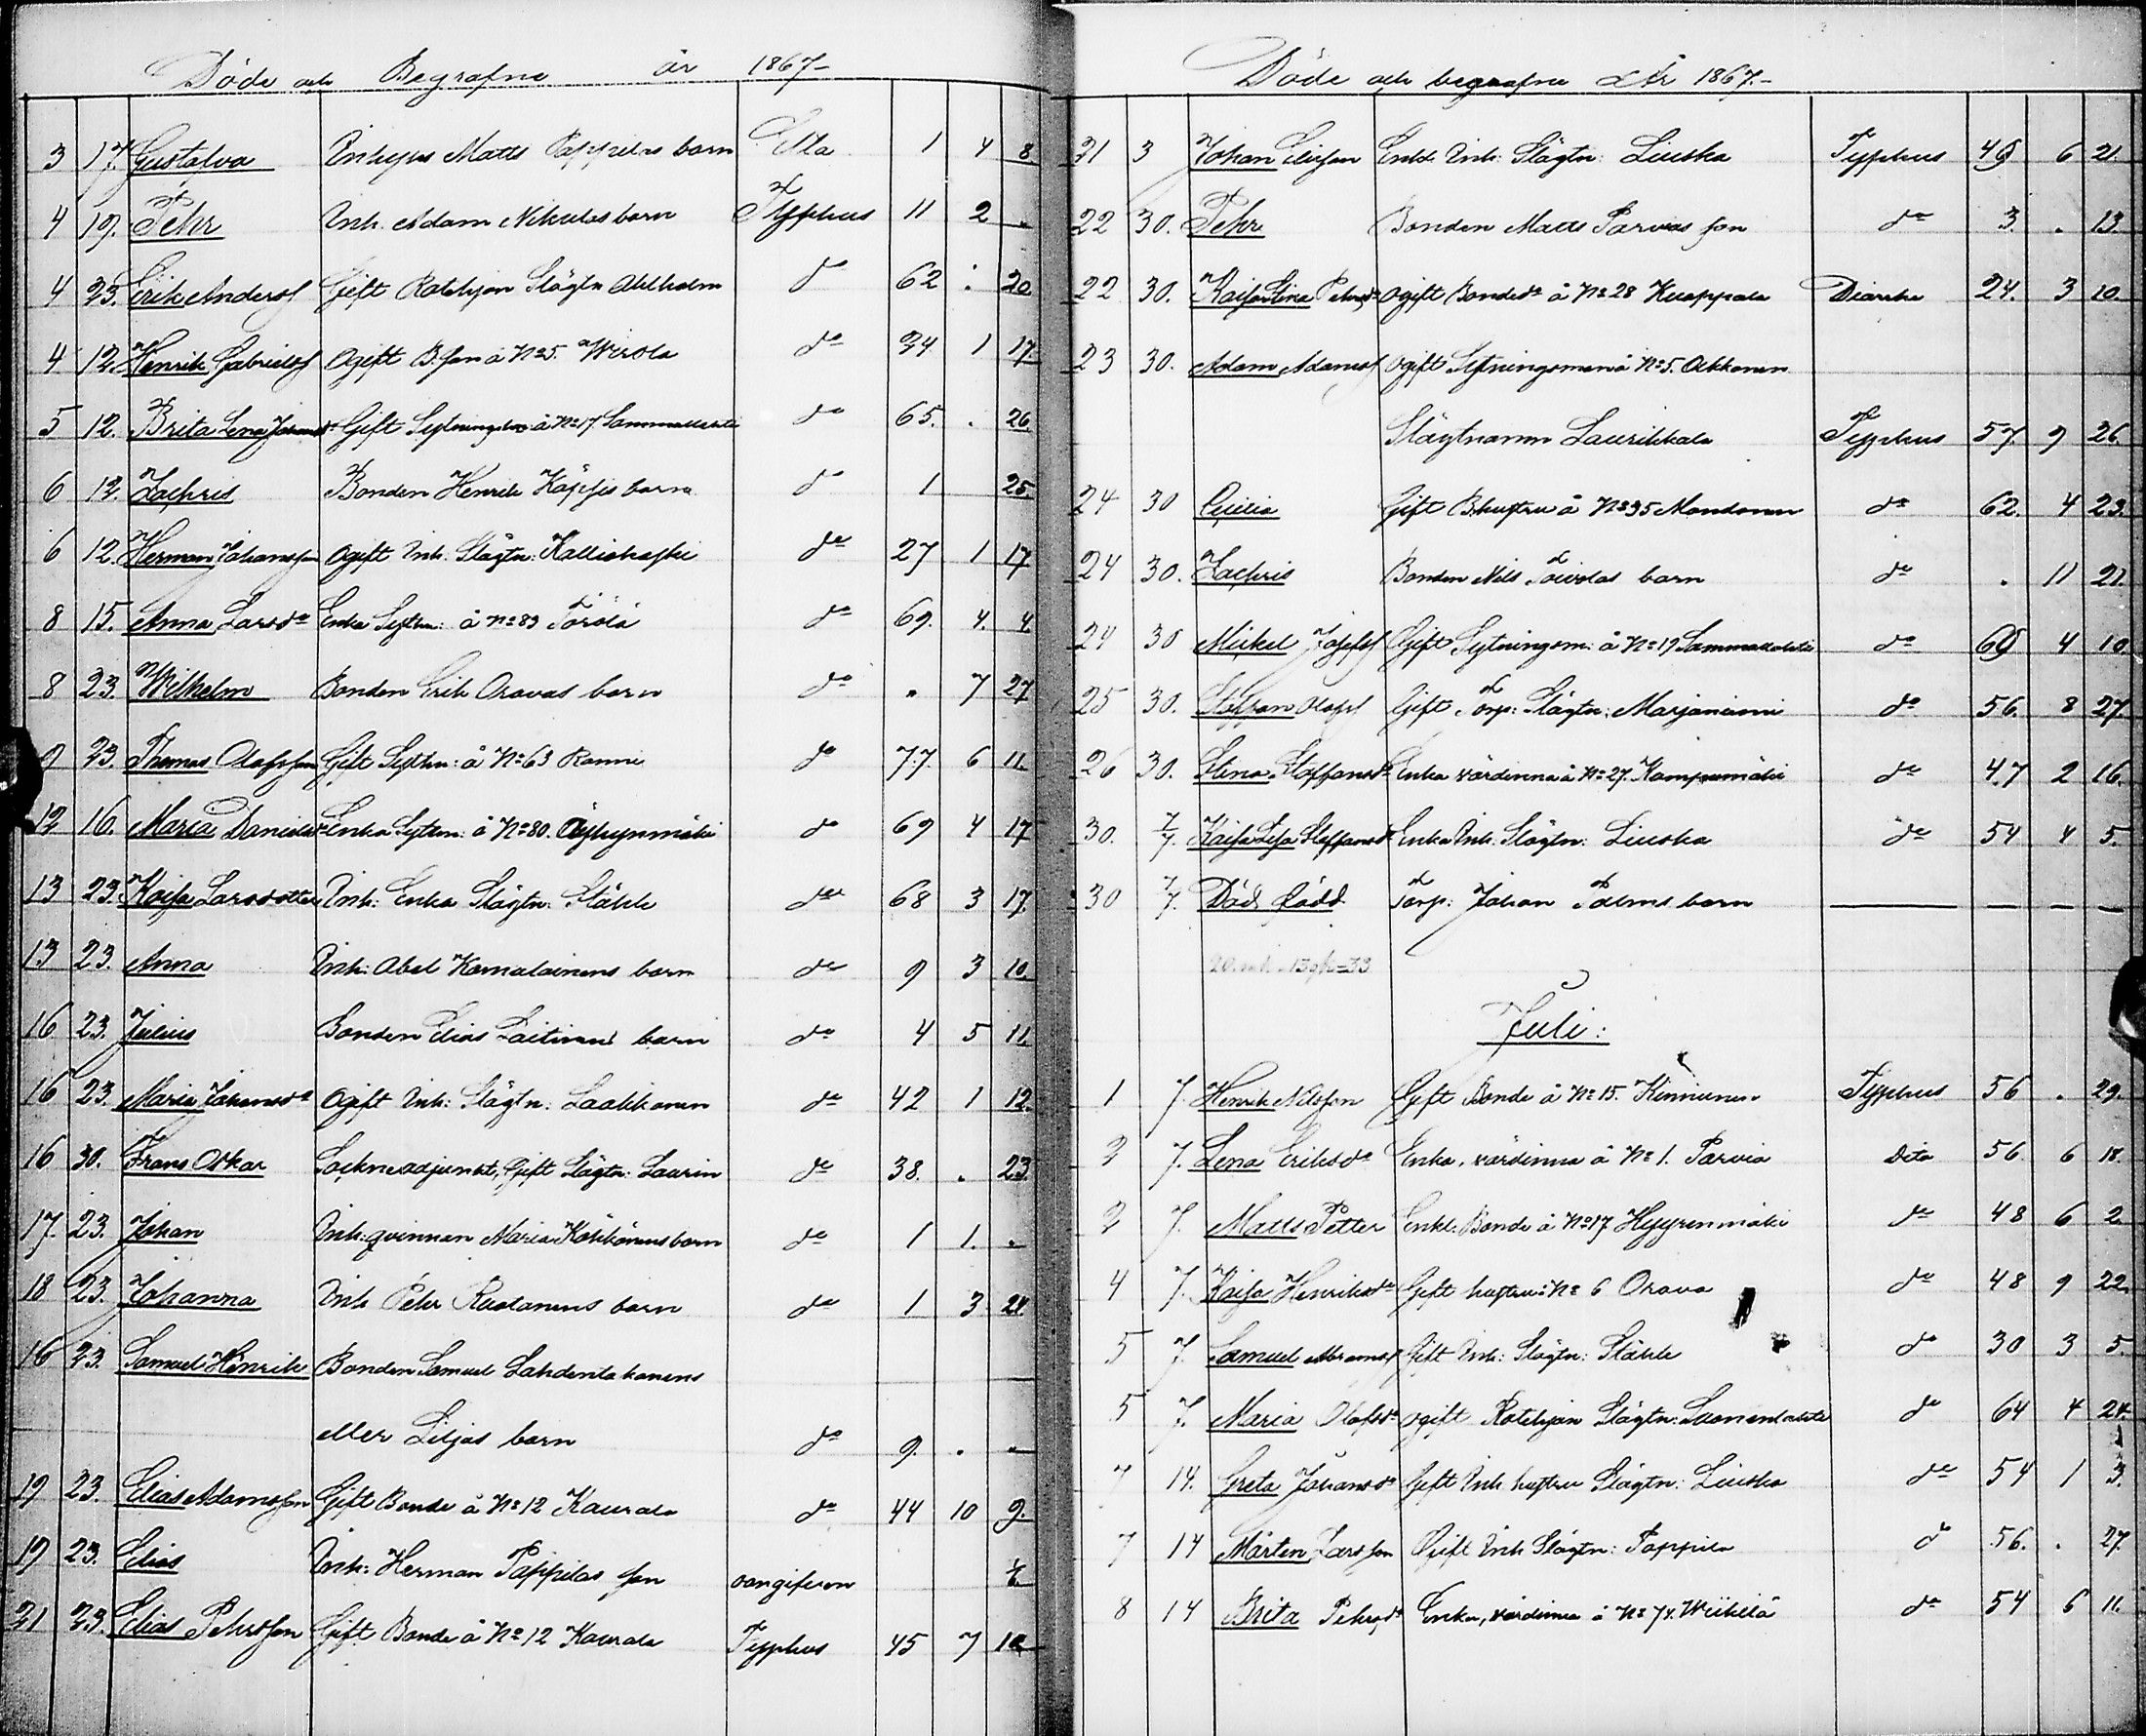 Döde och Begrafne år 1867-
3 17. Gustafva Matts Pappilas barn 1 4 8
4 19. Pehr Inh. Adam Nikulas barn Typhus 11 2 "
4 23. Erik Andersf Gift Rotehjon Slägtn Ahlholm do 62 . 20
4 12. Henrik Gabrielsf Ogift B.son å No 5. Wirola do 34 1 17
5 12. Brita Lena Johansdr Gift å No 17 Sammallahti do 65. . 26.
6 12. Zachris Bonden Henrik Käppis barn do 1 25.
6 12. Herman Johansson Ogift Inh. Slägtn: Kalliokoski do 27 1 17
8 15. Anna Larsdr Enka Sytn: å No 83 Törölä do 69. 4. 4.
8 23. Wilhelm Bonden Erik Oravas barn do " 7 27
9 23. Thomas Olofsson Gift Sytn: å No 63 Ranni do 77. 6 11.
12 16. Maria Danielsdr Enka Sytn: å No 80. do 69 4 17
13 23. Kaisa Larsdotter Inh: Enka Slägtn: Ståhle do 68 3 17.
13 23. Anna Inh: Abel Kamalainens barn do 9 3 10.
16 23. Julius Bonden Elias Laitinens barn do 4 5 11
16 23. Maria Johansdr Ogift Inh: Slägtn: Laakkonen do 42 1 12.
16 30. Frans Oskar Sockneadjunct, Gift Slägtn: Laurin do 38. . 23.
17. 23. Johan Inh: qvinnan Maria Kokkonens barn do 1 1. "
18 23. Johanna Inh Pehr Rautanens barn do 1 3 24.
16 23. Samuel Henrik Bonden Samuel Lahdentakanens
eller Liljas barn do 9. . "
19 23. Elias Adamsson Gift Bonde å No 12 Kaurala do 44 10 9.
19 23. Elias Inh: Herman Pappilas son oangifven
21 23. Elias Pehrsson Gift Bonde å No 12 Kaurala Typhus 45 7
Döde och begrafne År 1867.-
21 3 Johan Enkl. Inh: Slägtn: Liuska Typhus 49 6 21.
22 30. Pehr Bonden Matts Parvias son do 3. . 13.
22 30. Kaisa Stina Pehrsdr ogift Bondedr å No 28 Kuappala Diarrhe 24. 3 10.
23 30. Adam Adamsf ogift Sytningsman å No 5. Akkanen
Slägtnamn Laurikkala Typhus 57. 9 26.
24 30 Cecilia Gift B.hustru å No 35 Mondonen do 62. 4 23.
24 30. Zachris Bonden Nils Toivolas barn do . 11 21.
24 30 Mickel Josefsf Gift Sytningsm: å No 19 Sammallahti do 69 4 10.
25 30. Staffan Olofsf Gift Torp: Slägtn: Marjaniemi do 56. 8 27.
26 30. Stina Staffansdr Enka värdinna å No 27. Kampunmäki do 47 2 16.
30. 7/7. Kaisa Lisa Staffansdr Enka Inh: Slägtn: Liuska do 54 4 5.
30 7/7. Död född Torp: Johan Palms barn — — — —
20 mk - 13 qk = 33
Juli:
1 7. Henrik Nilsson Gift Bonde å No 15. Kinnunen Typhus 56 . 29.
2 7. Lena Eriksdr Enka, värdinna å No 1. Parvia Dito 56 6 18.
2 7. Matts Petter Enkl. Bonde å No 17 Hyyrenmäki do 48 6 2
4 7. Kaisa Henriksdr Gift hustru: No 6 Orava do 48 9 22.
5 7. Samuel Abramsf Gift Inh: Slägtn: Ståhle do 30 3 5.
5 7. Maria Olofsdr ogift Rotehjon Slägtn: do 64 4 24.
7 14. Greta Johansdr Gift Inh hustru Slägtn: Liuska do 54 1 3.
7 14 Mårten Larsson Gift Inh Slägtn: Pappila do 56. . 27
8 14 Brita Pehrsdr Enka, värdinna å No 74. Wiikilä do 54 6 11.